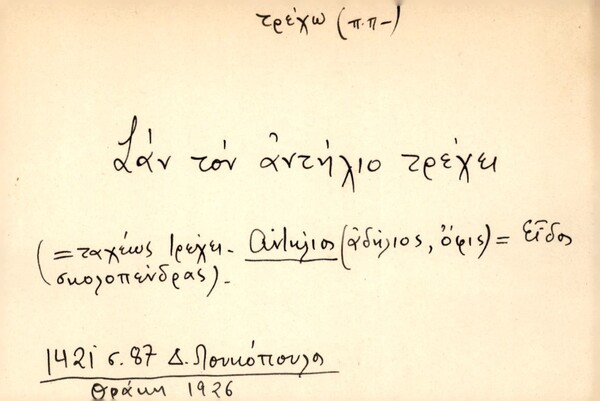 τρέχω (π.π-)
Σάν τόν ἀντήλιο τρέχει
(= ταχέως τρέχει. Ἀντήλιος (ἀδήλιος, ὄφις) = Εἶδος
σκολοπένδρας).
1421 σ. 87 Δ. Λουκόπουλο
Θράκη 1926